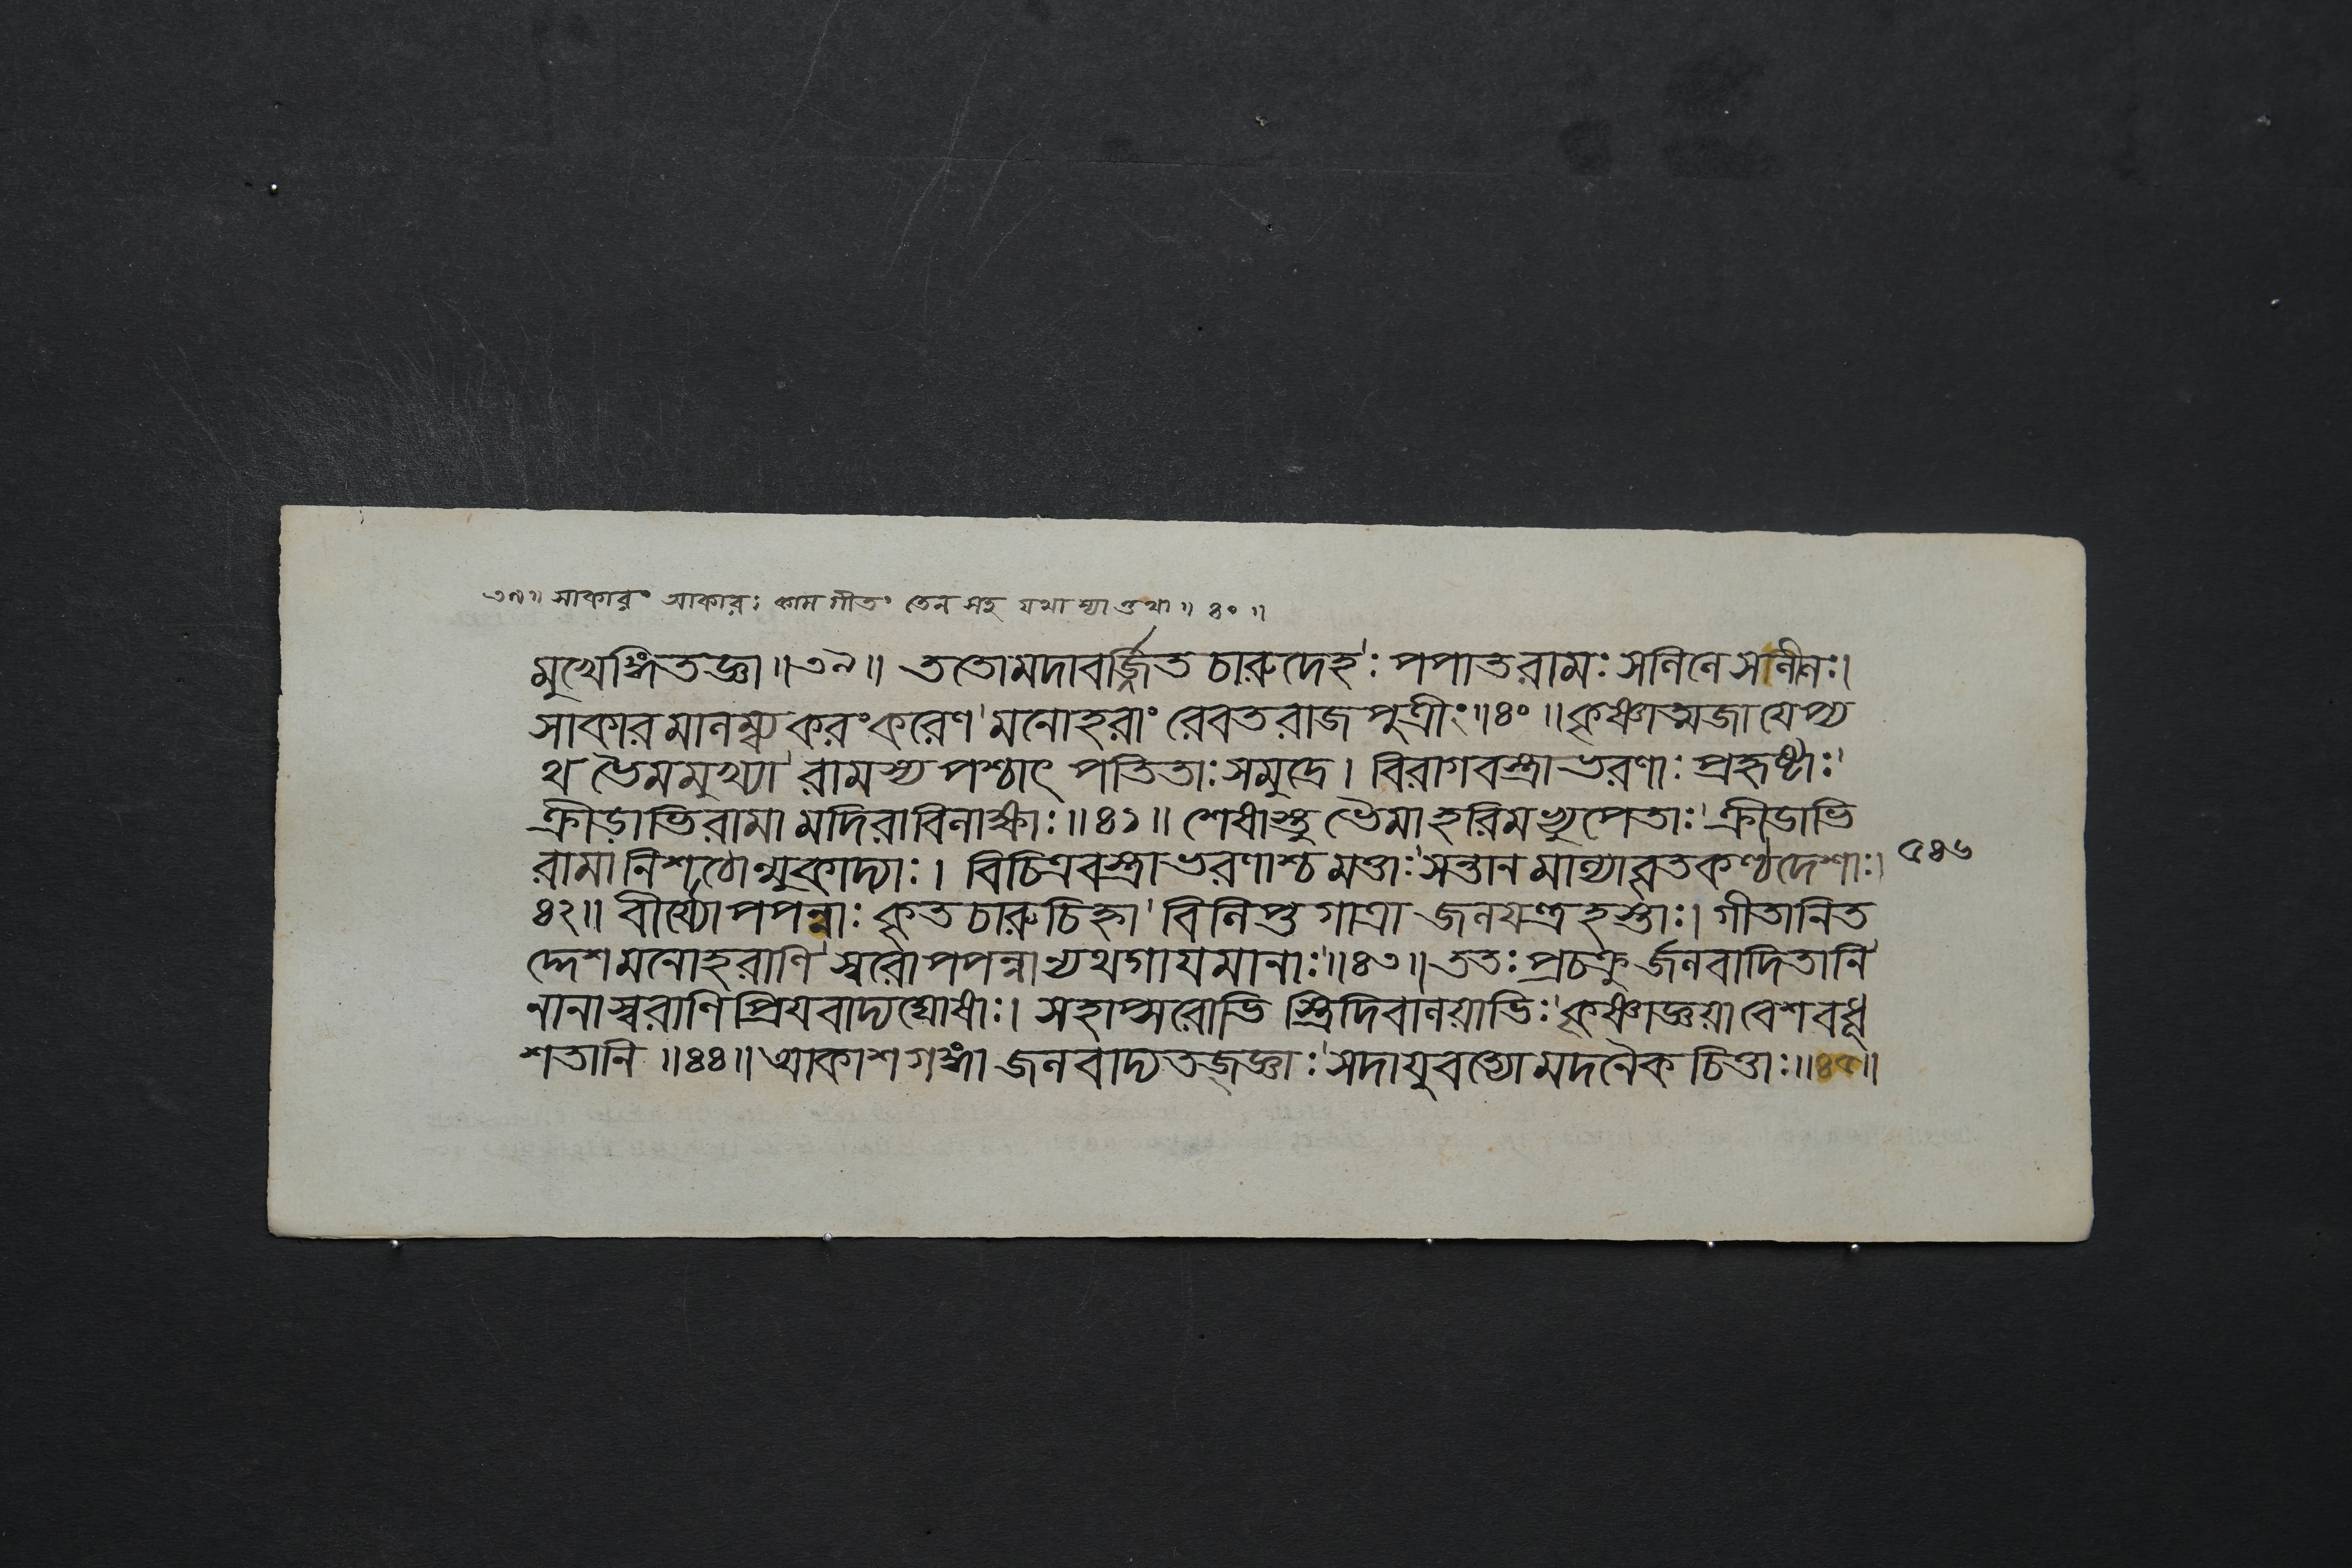 ৩৯॥ সাকারং আকারঃ কাম গীতং তেন সহ যথা স্যাত্তথা॥ ৪০॥
মুখেঙ্গিতজ্ঞা॥৩৯॥ ততোমদাবর্জ্জিত চারুদেহঃ পপাতরামঃ সলিলে সলীলঃ।
সাকারমালম্ব্য করংকরেণ মনোহরাং রেবতরাজ পুত্রীং॥৪০॥কৃষ্ণাত্মজা যেপ্য
থ ভৈমমুখ্যা রামস্য পশ্চাৎ পতিতাঃ সমুদ্রে। বিরাগবস্ত্রাভরণাঃ প্রহৃষ্টাঃ
ক্রীড়াভিরামা মদিরাবিলাক্ষাঃ॥৪১॥ শেষাস্তু ভৈমা হরিমভ্যুপেতাঃ ক্রীডাভি
রামা নিশঠোল্মুকাদ্যাঃ। বিচিত্রবস্ত্রাভরণাশ্চ মত্তাঃ সন্তান মাল্যাবৃতকণ্ঠদেশাঃ।
৪২॥ বীর্য্যোপপন্নাঃ কৃত চারুচিহ্না বিলিপ্ত গাত্রা জলযন্ত্রহস্তাঃ। গীতানিত
দ্দেশমনোহরাণি স্বরোপপন্নান্যথগাযমানাঃ॥৪৩॥ততঃ প্রচক্রুর্জলবাদিতানি
নানাস্বরাণি প্রিযবাদ্যঘোষাঃ। সহাপ্সরোভি স্ত্রিদিবালয়াভিঃ কৃষ্ণাজ্ঞয়া বেশবধূ
শতানি॥৪৪॥আকাশগঙ্গা জলবাদ্যতজ্জ্ঞাঃ সদাযুবত্যো মদনৈক চিত্তাঃ॥৪৫॥
৫৪৬